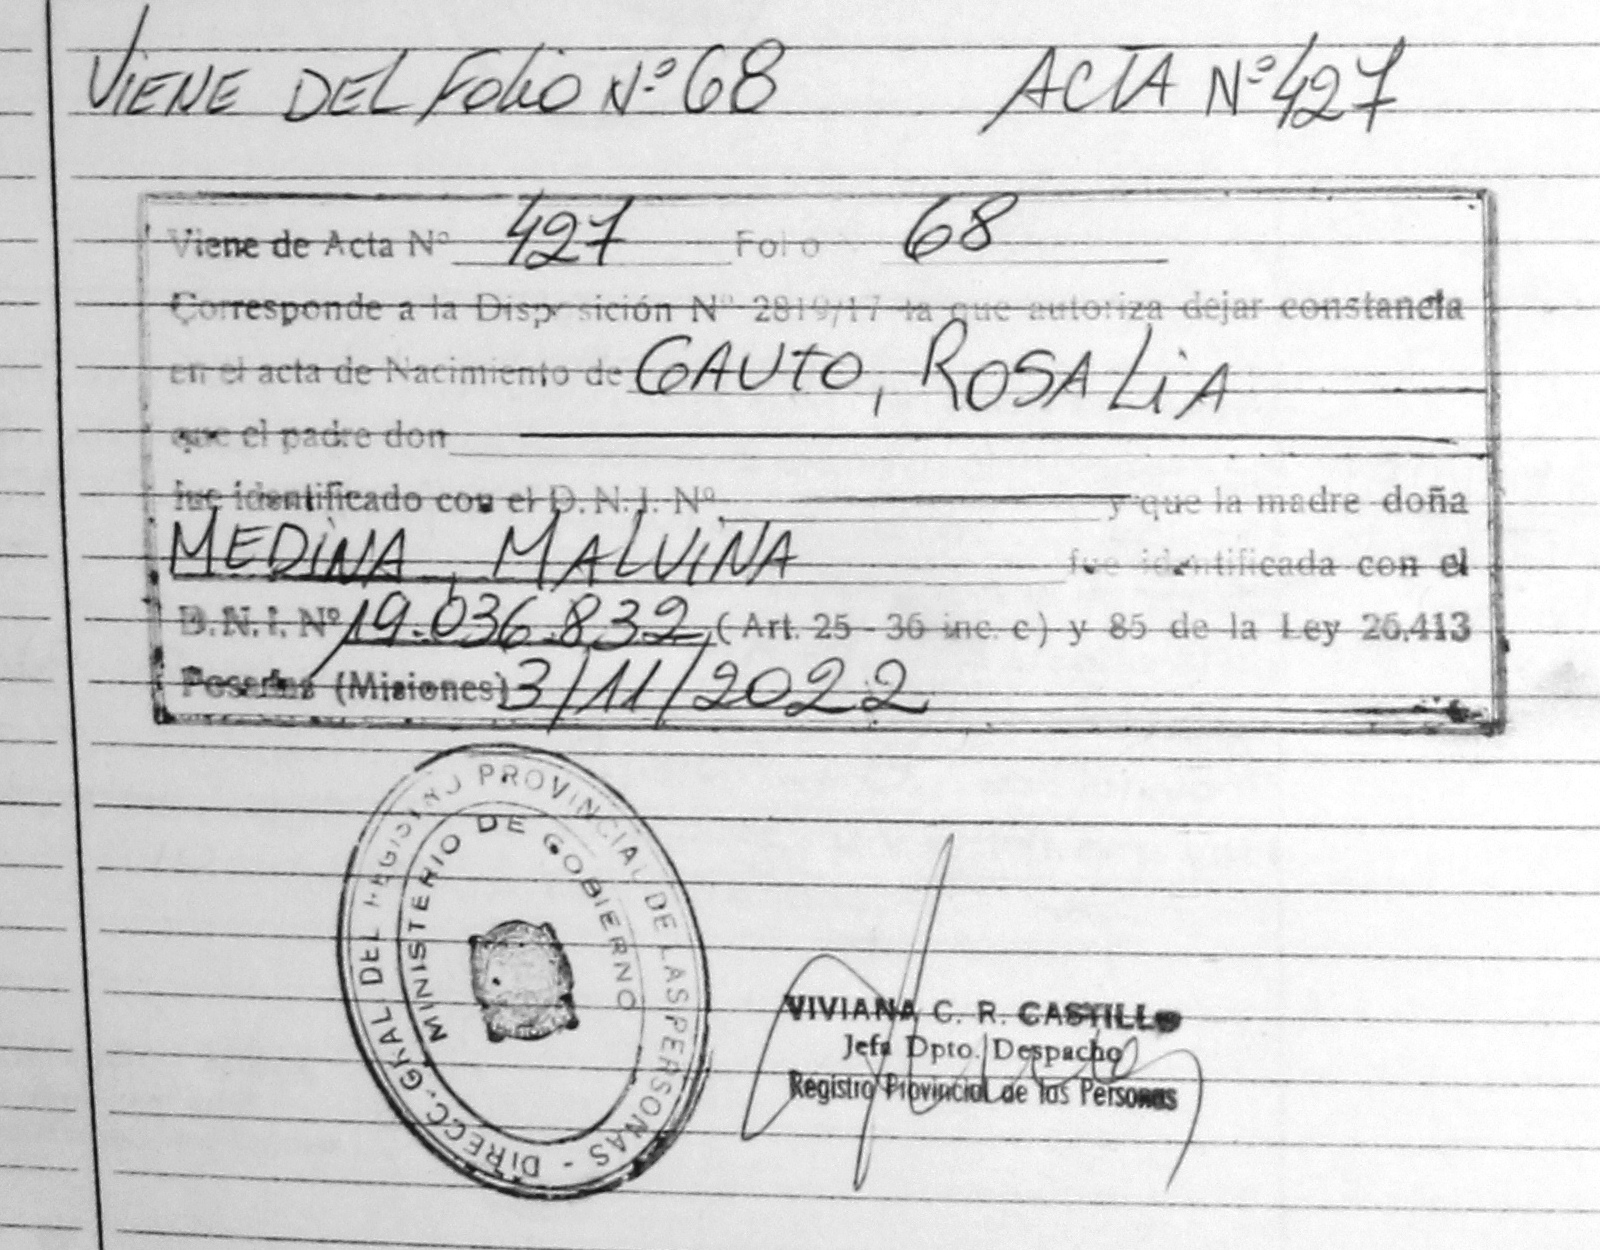 VIENE DEL FOLIO Nº 68 ACTA Nº 427
Viene de Acta Nº 427 Folio 68
Corresponde a la Disposición Nº 2819/17 la que autoriza dejar constancia
en el acta de Nacimiento de GAUTO, ROSALIA
que el padre don
fue identificado con el D.N.I. Nº y que la madre doña
MEDINA, MALVINA fue identificada con el
D.N.I. Nº 19.036.832 (Art. 25 - 36 inc. c) y 85 de la Ley 26.413
Posadas (Misiones) 3/11/2022
DIRECC. GRAL DEL REGISTRO PROVINCIAL DE LAS PERSONAS -
MINISTERIO DE GOBIERNO
VIVIANA C. R. CASTILLO
Jefa Dpto. Despacho
Registro Provincial de las Personas